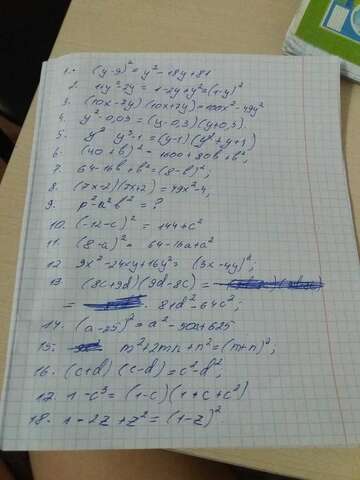 1. (y-9)²=y²-18y+81
2. 1+y²-2y = 1-2y+y²=(1-y)²
3. (10x-7y)(10x+7y)=100x²-49y²
4. y²-0,09=(y-0,3)(y+0,3).
5. y³-1=(y-1)(y²+y+1)
6. (40+b)²= 1600+80b+b²,
7. 64-16b+b²=(8-b)²;
8. (7x-2)(7x+2)=49x²-4,
9. p²-a²b²=?
10. (-12-c)²=144+c²
11. (8-a)²= 64-16a+a²
12. 9x²-24xy+16y²= (3x-4y)²;
13 (8c+9d)(9d-8c)=
= 81d²-64c²;
14. (a-25)²=a²-50a+625
15. m²+2mn+n²=(m+n)²,
16. (c+d)(c-d)=c²-d²,
17. 1-c³=(1-c)(1+c+c²)
18. 1-2z+z²=(1-z)²